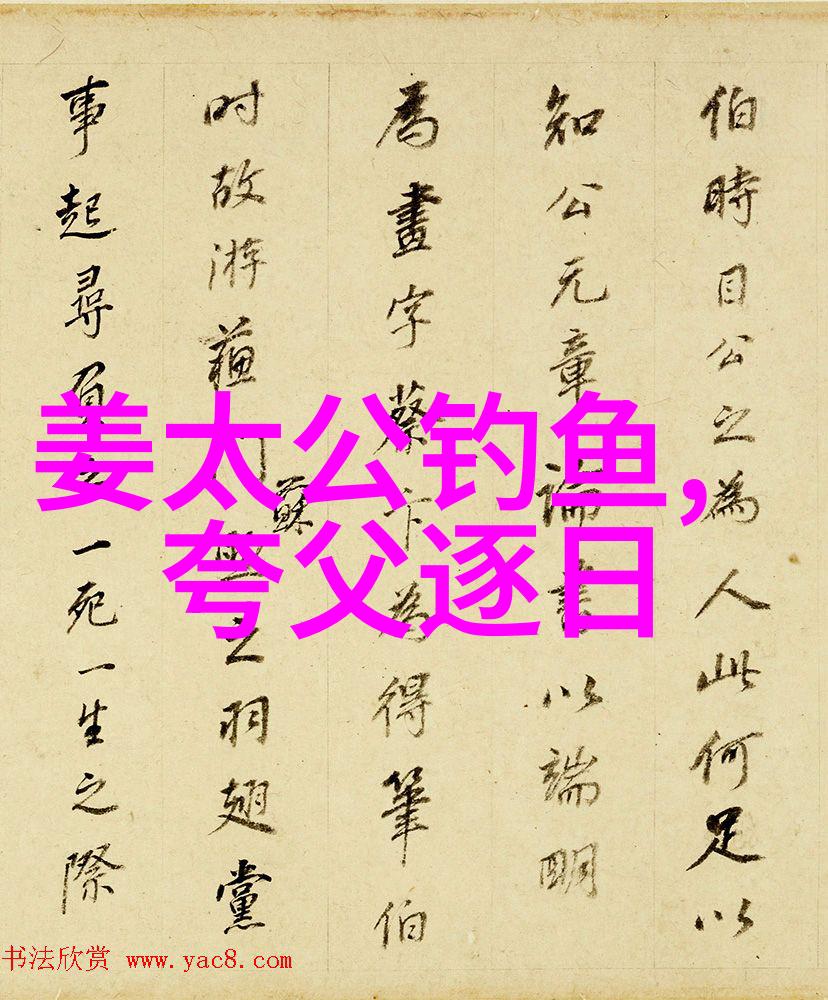 伯時目公之為人此何足以
知公元章論書以端明
為畫字蔡卞為得筆伯
时故游蘓之羽翅黨
蘇
事起尋負一死一生之際
姜太公钓鱼,
夸父逐日
书法欣赏 www.yac8.com